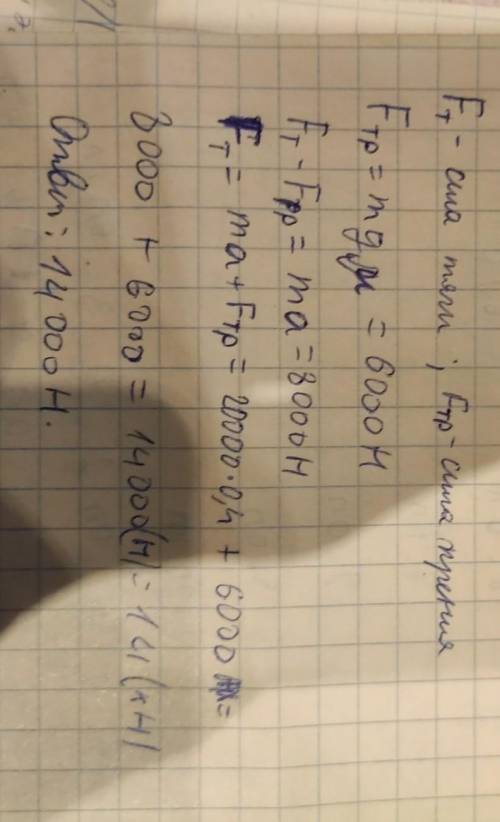 Fт - сила тяги ; Fтр - сила трения
Fтр = mgμ = 6000 Н
Fт - Fтр = ma = 8000 Н
Fт = ma + Fтр = 20000·0,4 + 6000 =
8000 + 6000 = 14000(Н) = 14 (кН)
Ответ: 14 000 Н.